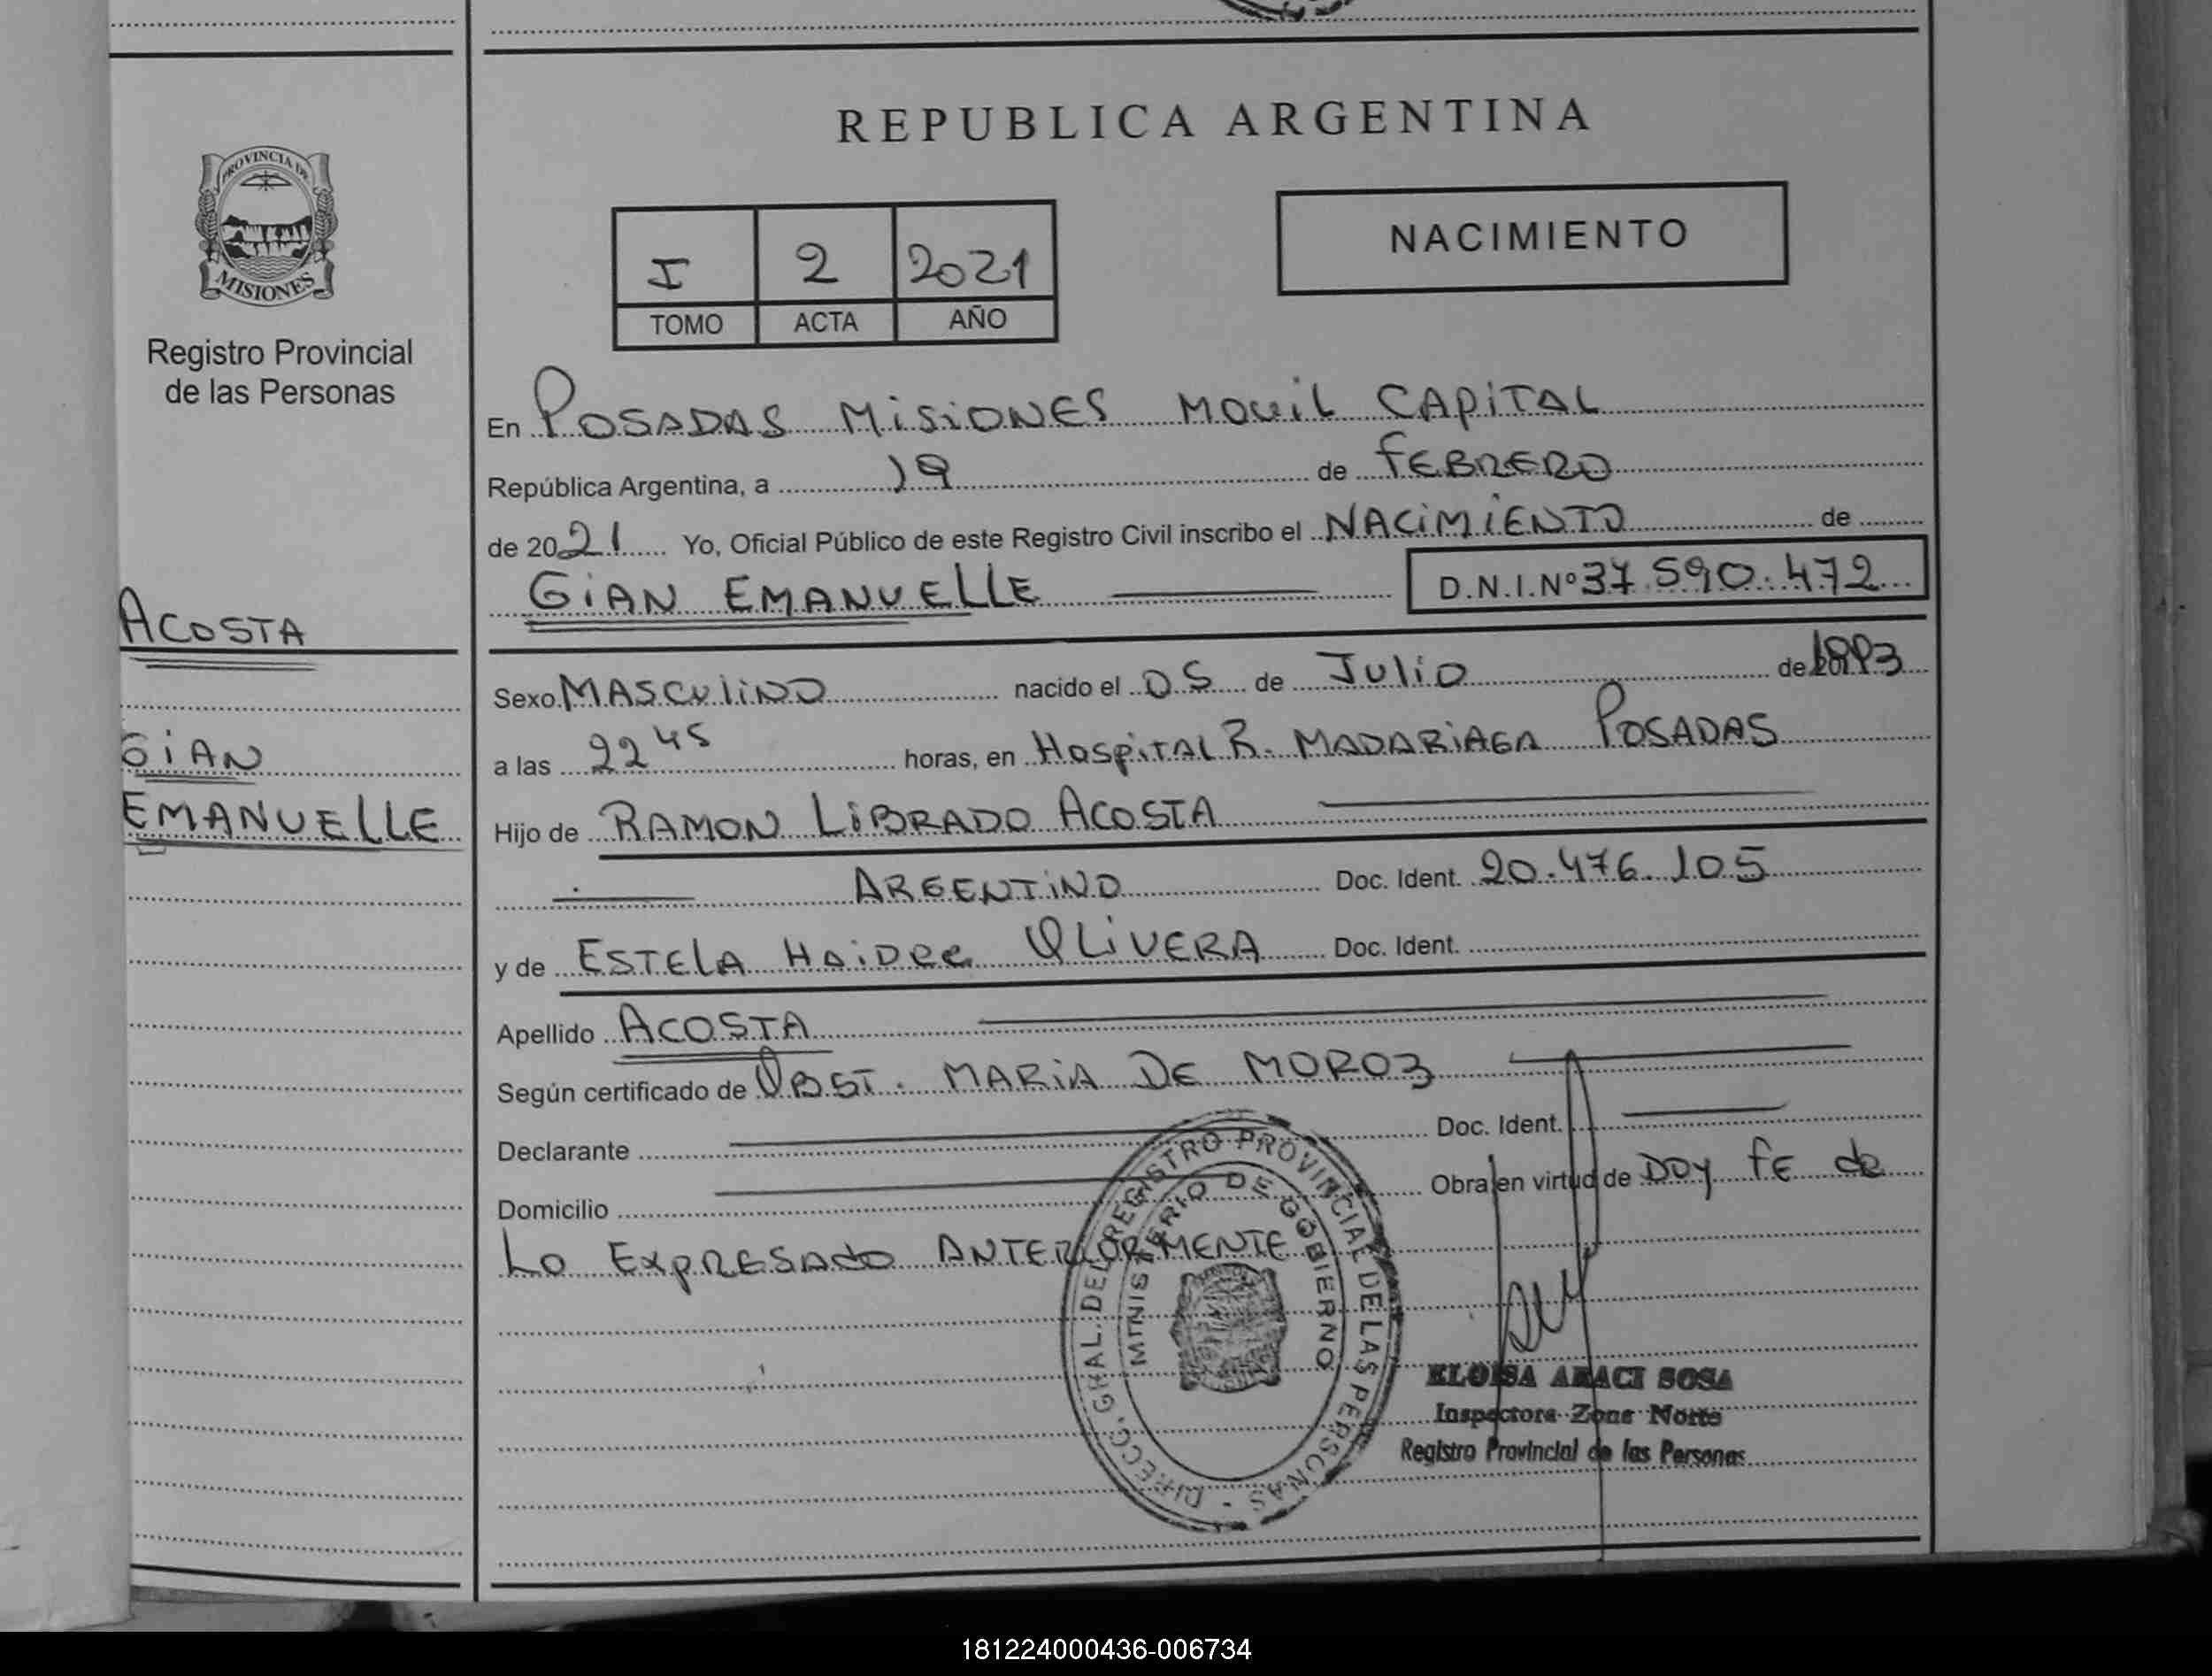 REPUBLICA ARGENTINA
PROVINCIA DE
MISIONES
Registro Provincial
de las Personas
I 2 2021
TOMO ACTA AÑO
NACIMIENTO
En POSADAS MISIONES MOVIL CAPITAL
República Argentina, a 19 de FEBRERO
de 2021 Yo, Oficial Público de este Registro Civil inscribo el NACIMIENTO de
GIAN EMANUELLE D.N.I.Nº 37.590.472
ACOSTA
GIAN
EMANUELLE
Sexo MASCULINO nacido el 05 de JULIO de 1993
a las 22 45 horas, en HOSPITAL R. MADARIAGA POSADAS
Hijo de RAMON LIBRADO ACOSTA
ARGENTINO Doc. Ident. 20.476.105
y de ESTELA HAIDEE OLIVERA Doc. Ident.
Apellido ACOSTA
Según certificado de OBST. MARIA DE MOROZ
Declarante Doc. Ident.
Domicilio Obra en virtud de DOY FE de
LO EXPRESADO ANTERIORMENTE
DIRECC. GRAL. DEL REGISTRO PROVINCIAL DE LAS PERSONAS
MINISTERIO DE GOBIERNO
ELOISA ARACI SOSA
Inspectora Zona Norte
Registro Provincial de las Personas
181224000436-006734